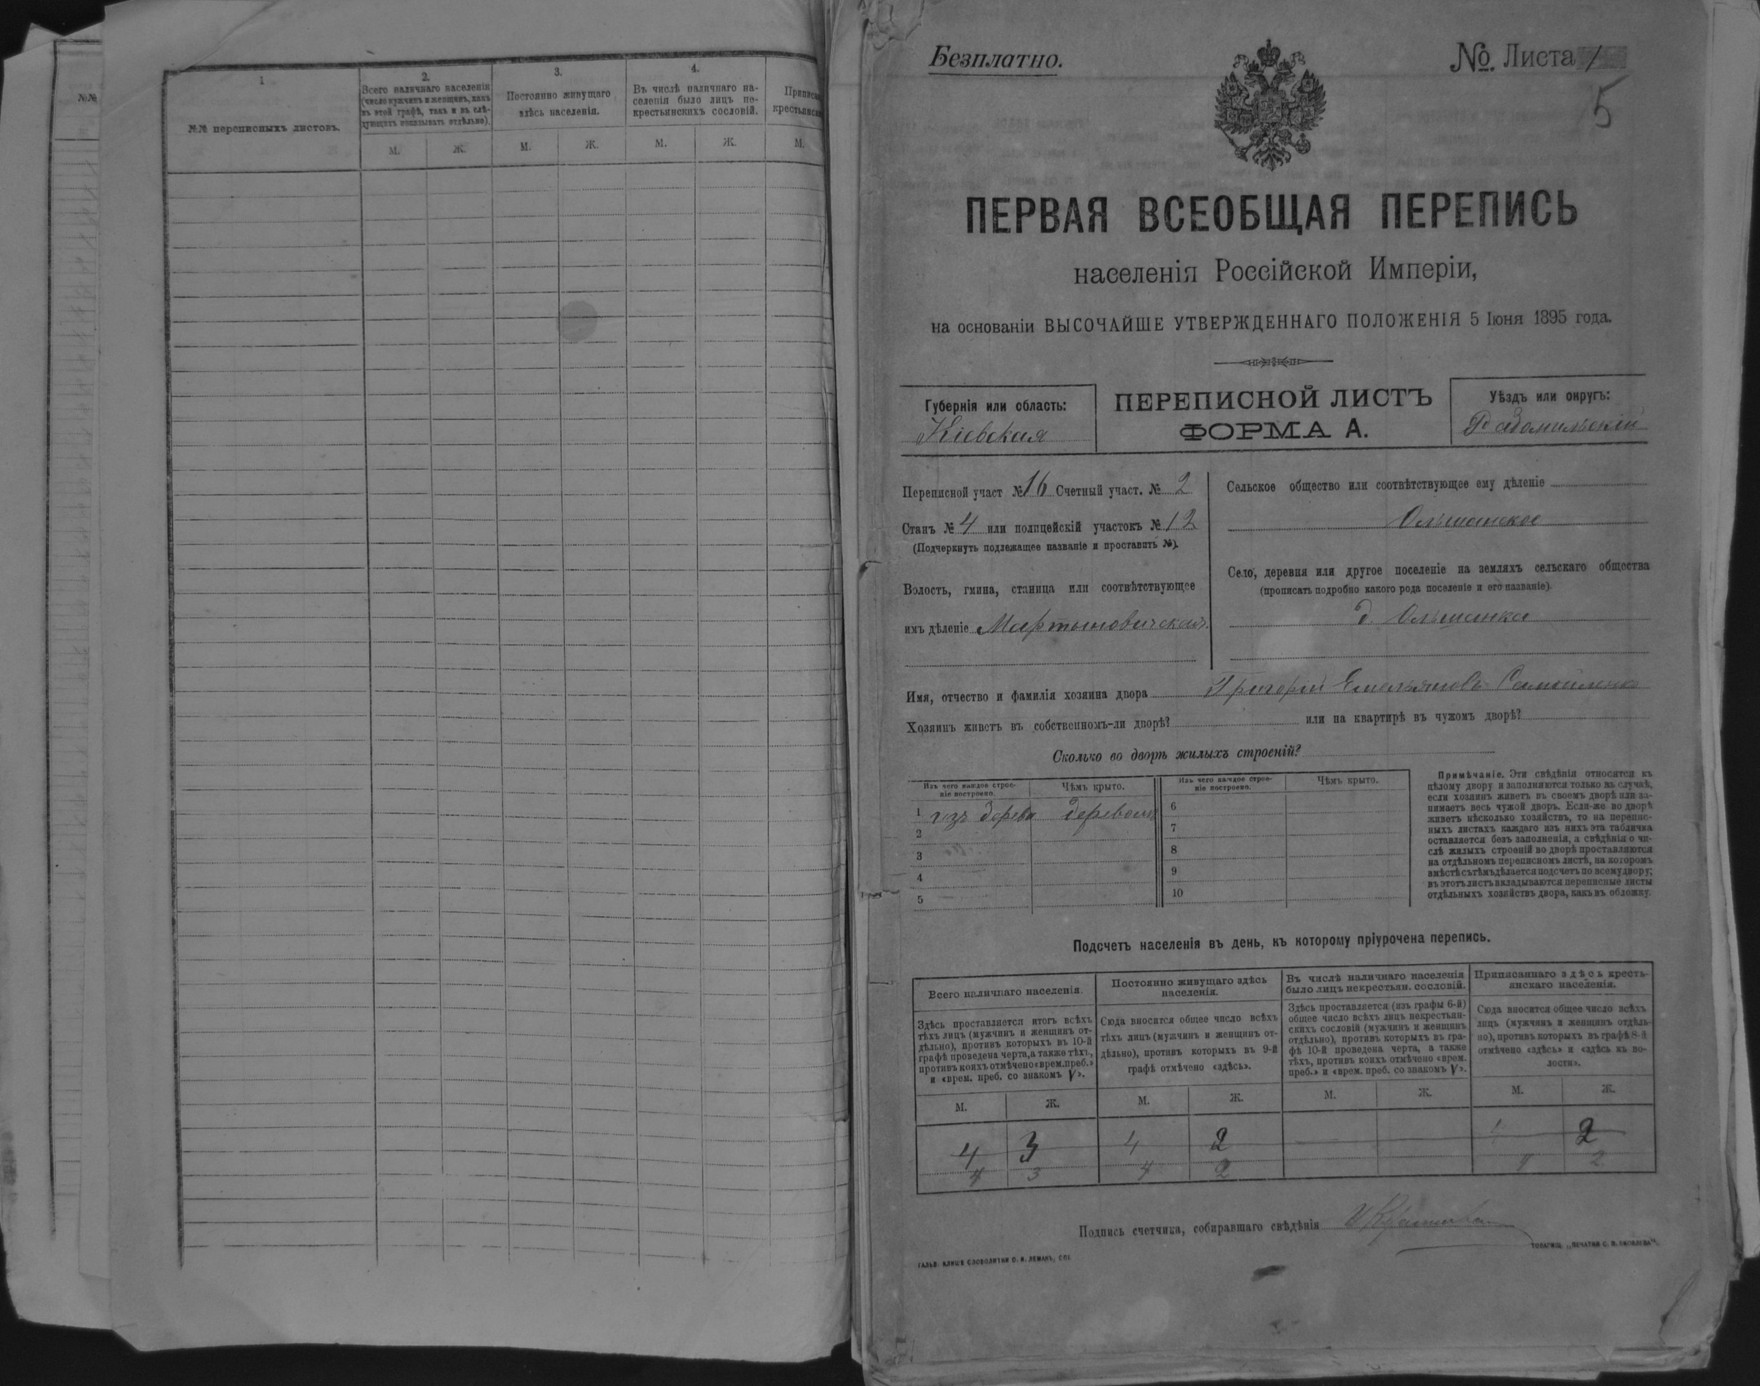 №№
1
№№ переписныхъ листовъ.
2.
Всего наличнаго населенія
(число мужчинъ и женщинъ, какъ
въ этой графѣ, такъ и въ слѣ-
дующихъ показывать отдѣльно).
М. Ж.
3.
Постоянно живущаго
здѣсь населенія.
М. Ж.
4.
Въ числѣ наличнаго на-
селенія было лицъ не-
крестьянскихъ сословій.
М. Ж.
М.
Безплатно.
№ Листа 1
5
ПЕРВАЯ ВСЕОБЩАЯ ПЕРЕПИСЬ
населенія Россійской Имперіи,
на основаніи ВЫСОЧАЙШЕ УТВЕРЖДЕННАГО ПОЛОЖЕНІЯ 5 Іюня 1895 года.
Губернія или область:
Кіевская
ПЕРЕПИСНОЙ ЛИСТЪ
ФОРМА А.
Уѣздъ или округъ:
Радомысльскій
Переписной участ №16 Счетный участ. № 2
Станъ № 4 или полицейскій участокъ № 12
(Подчеркнуть подлежащее названіе и проставить №).
Волость, гмина, станица или соотвѣтствующее
имъ дѣленіе Мартыновичская
Сельское общество или соотвѣтствующее ему дѣленіе
Ольшанское
Село, деревня или другое поселеніе на земляхъ сельскаго общества
(прописать подробно какого рода поселеніе и его названіе).
д. Ольшанка
Имя, отчество и фамилія хозяина двора Григорій Емельяновъ Самойленко
Хозяинъ живетъ въ собственномъ-ли дворѣ? или на квартирѣ въ чужомъ дворѣ?
Сколько во дворѣ жилыхъ строеній?
Изъ чего каждое строе-
ніе построено.
Чѣмъ крыто.
Изъ чего каждое строе-
ніе построено.
Чѣмъ крыто.
1 изъ дерева деревомъ
2
3
4
5
6
7
8
9
10
Примѣчаніе. Эти свѣдѣнія относятся къ
цѣлому двору и заполняются только въ случаѣ,
если хозяинъ живетъ въ своемъ дворѣ или за-
нимаетъ весь чужой дворъ. Если-же во дворѣ
живетъ нѣсколько хозяйствъ, то на перепис-
ныхъ листахъ каждаго изъ нихъ эта табличка
оставляется безъ заполненія, а свѣдѣнія о чи-
слѣ жилыхъ строеній во дворѣ проставляются
на отдѣльномъ переписномъ листѣ, на которомъ
вмѣстѣ съ тѣмъ дѣлается подсчетъ по всему двору;
въ этотъ листъ вкладываются переписные листы
отдѣльныхъ хозяйствъ двора, какъ въ обложку.
Подсчетъ населенія въ день, къ которому пріурочена перепись.
Всего наличнаго населенія.
Здѣсь проставляется итогъ всѣхъ
тѣхъ лицъ (мужчинъ и женщинъ от-
дѣльно), противъ которыхъ въ 10-й
графѣ проведена черта, а также тѣхъ,
противъ коихъ отмѣчено «врем. преб.»
и «врем. преб. со знакомъ V».
М. Ж.
Постоянно живущаго здѣсь
населенія.
Сюда вносится общее число всѣхъ
тѣхъ лицъ (мужчинъ и женщинъ от-
дѣльно), противъ которыхъ въ 9-й
графѣ отмѣчено «здѣсь».
М. Ж.
Въ числѣ наличнаго населенія
было лицъ некрестьян. сословій.
Здѣсь проставляется (изъ графы 6-й)
общее число всѣхъ лицъ некрестьян-
скихъ сословій (мужчинъ и женщинъ
отдѣльно), противъ которыхъ въ гра-
фѣ 10-й проведена черта, а также
тѣхъ, противъ коихъ отмѣчено «врем.
преб.» и «врем. преб. со знакомъ V».
М. Ж.
Приписаннаго здѣсь кресть-
янскаго населенія.
Сюда вносится общее число всѣхъ
лицъ (мужчинъ и женщинъ отдѣль-
но), противъ которыхъ въ графѣ 8-й
отмѣчено «здѣсь» и «здѣсь въ во-
лости».
М. Ж.
4 3 4 2 2
4 3 4 2 2
Подпись счетчика, собиравшаго свѣдѣнія
ГАЛЬВ. КЛИШЕ СЛОВОЛИТНИ О. И. ЛЕМАНЪ, СПБ.
ТОВАРИЩ. „ПЕЧАТНЯ С. П. ЯКОВЛЕВА“.